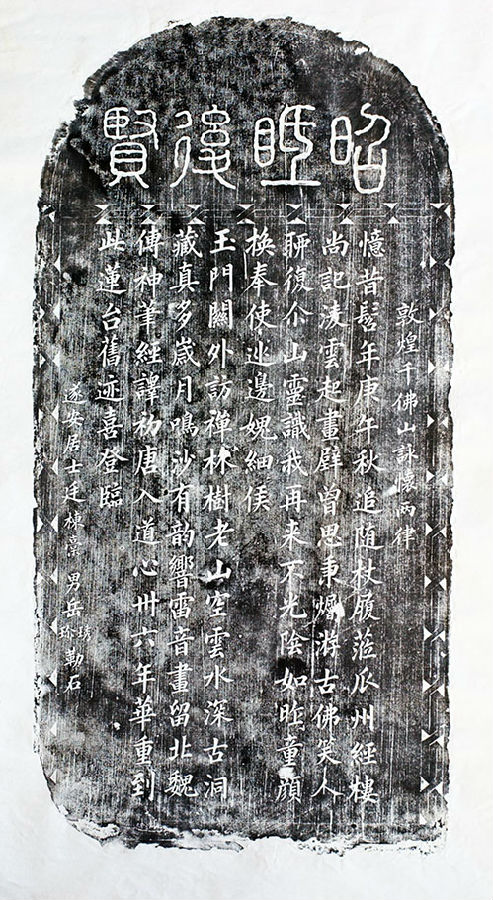 昭眡後賢
敦煌千佛山詠懷两律
憶昔髫年庚午秋追随杖履蒞瓜州經樓
尚記淩雲起畫壁曾思秉爥游古佛笑人
聊復尒山靈識我再来不光陰如昨童顔
換奉使巡邊媿細侯
玉門關外訪禪林樹老山空雲水深古洞
藏真多歲月鳴沙有韵響雷音畫留北魏
傳神筆經譯初唐入道心卅六年華重到
此蓮台舊迹喜登臨
遂安居士廷棟稾 男岳琇珍勒石